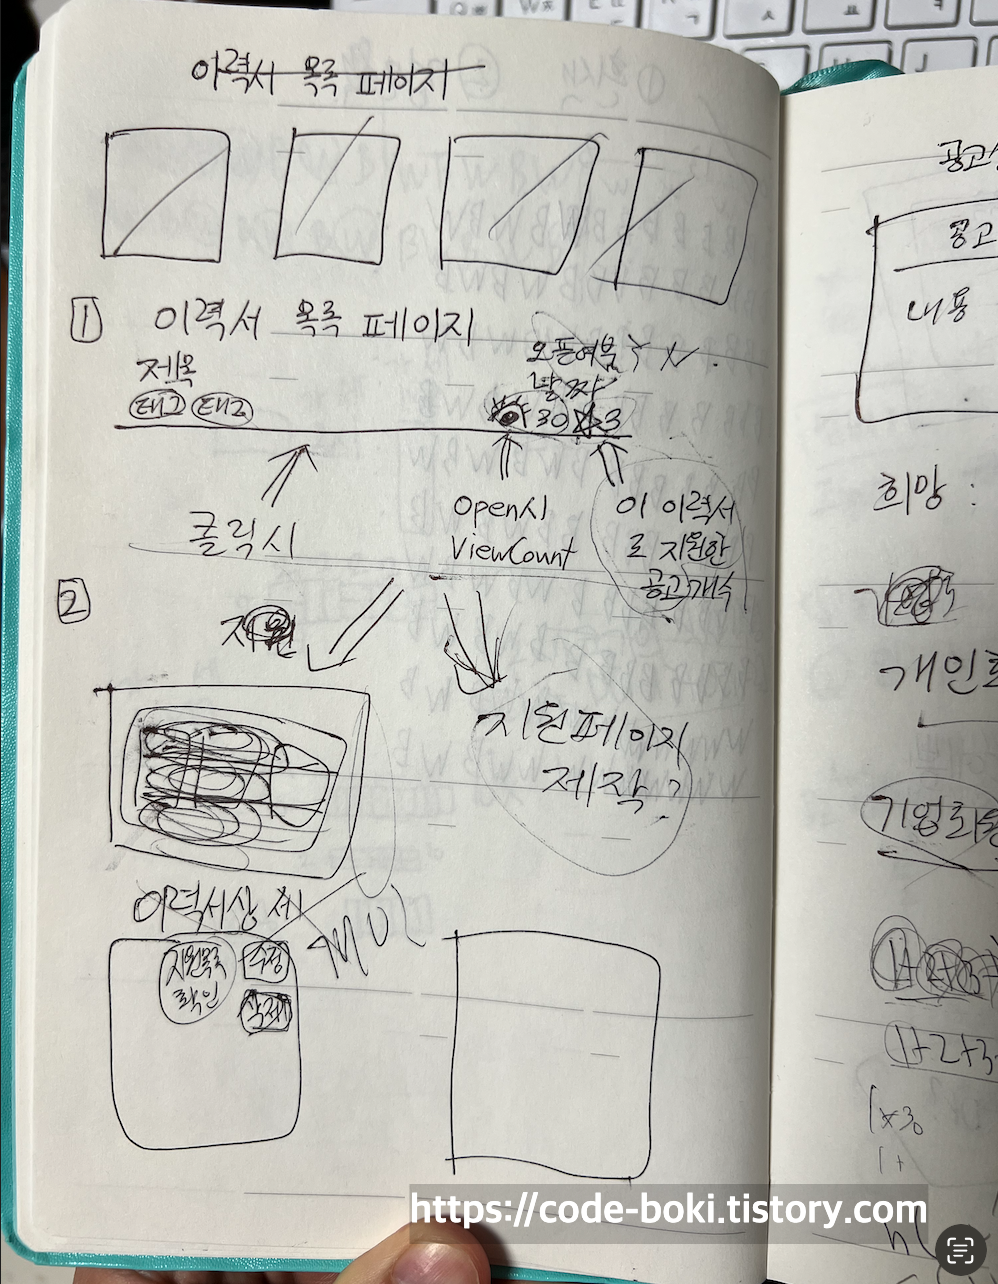 이력서 목록 페이지
1 이력서 목록 페이지
제목
태그 태그
오픈여부
날짜
30 3
클릭시
Open시
ViewCount
이 이력서
로 지원한
공고개수
2
지원
지원페이지
제작?
이력서상세
지원목록
확인
수정
삭제
공고
내용
희망 :
개인회
기업회원
1+2+3
https://code-boki.tistory.com